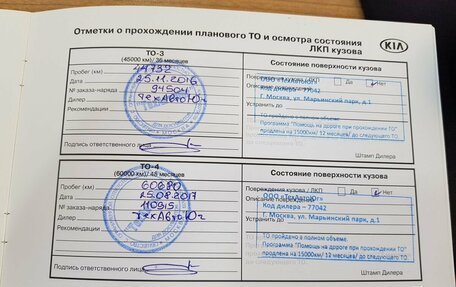 Отметки о прохождении планового ТО и осмотра состояния
ЛКП кузова
KIA
ТО-3
(45000 км)/ 36 месяцев
Состояние поверхности кузова
Пробег (км) 44738
Повреждения кузова / ЛКП Да Нет
Дата 25.11.2016
ООО «ТехАвтоЮг»
Описание повреждений
Код дилера - 77042
№ заказа-наряда 94504
г. Москва, ул. Марьинский парк, д.1
Дилер ТехАвтоЮг
Устранить до
Рекомендации
ТО пройдено в полном объеме.
Программа "Помощь на дороге при прохождении ТО"
продлена на 15000км/ 12 месяцев/ до следующего ТО
Подпись ответственного лица
Штамп Дилера
ТО-4
(60000 км)/ 48 месяцев
Состояние поверхности кузова
Пробег (км) 60680
Повреждения кузова / ЛКП Да Нет
Дата 25.08.2017
ООО «ТехАвтоЮг»
Описание повреждений
Код дилера – 77042
№ заказа-наряда 110915
г. Москва, ул. Марьинский парк, д.1
Дилер ТехАвтоЮг
Устранить до
Рекомендации
ТО пройдено в полном объеме.
Программа "Помощь на дороге при прохождении ТО"
продлена на 15000км/ 12 месяцев/ до следующего ТО
Подпись ответственного лица
Штамп Дилера